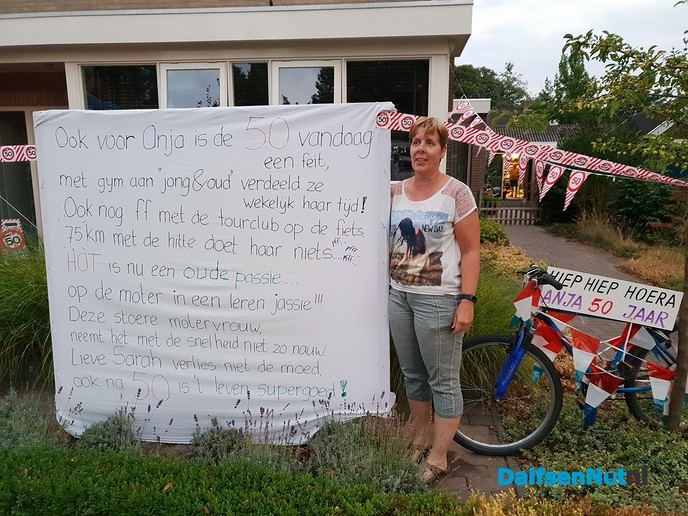 Ook voor Anja is de 50 vandaag
een feit,
met gym aan "jong&oud" verdeeld ze
wekelijk haar tijd!
Ook nog ff met de tourclub op de fiets
75 km met de hitte doet haar niets...
HOT is nu een oude passie.....
op de moter in een leren jassie!!!
Deze stoere motervrouw,
neemt het met de snelheid niet zo nauw.
Lieve Sarah verlies niet de moed,
ook na 50 is 't leven supergoed!
HIEP HIEP HOERA
ANJA 50 JAAR
50
50
50
NEW DAY
DalfsenNet.nl